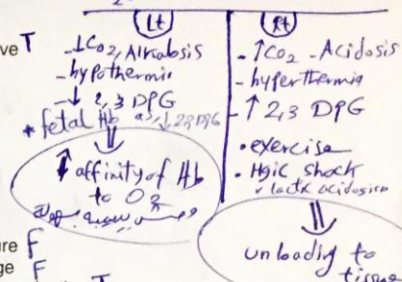 Lt
Rt
ve T
- ↓ CO2, Alkalosis
- hypothermia
- ↓ 2,3 DPG
* fetal Hb as ↓ 2,3 DPG
⇓
↑ affinity of Hb
to O2
- ↑ CO2 - Acidosis
- hyperthermia
- ↑ 2,3 DPG
• exercise
• Hgic shock
lactic acidosis
⇓
unloading to
tissue
ure F
ge F
T